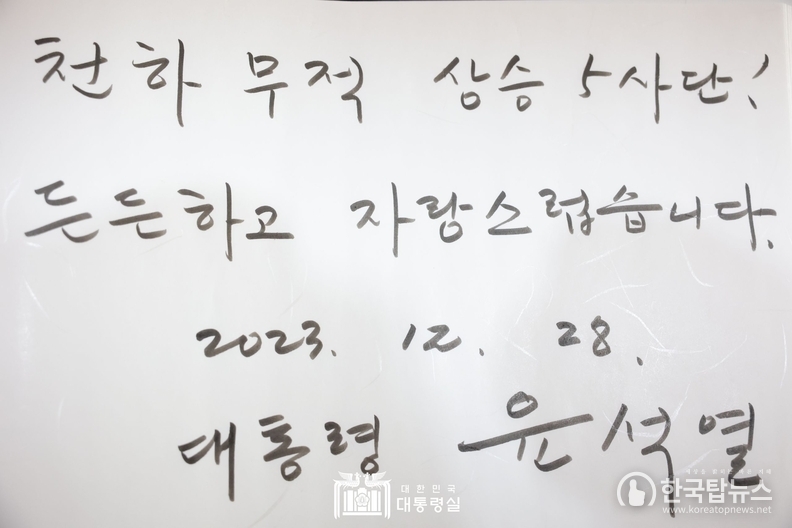 천하 무적 상승 5사단!
든든하고 자랑스럽습니다.
2023. 12. 28.
대통령 윤석열
대한민국
대통령실
세상을 바꾸는 한국 경제
한국탑뉴스
www.koreatopnews.net